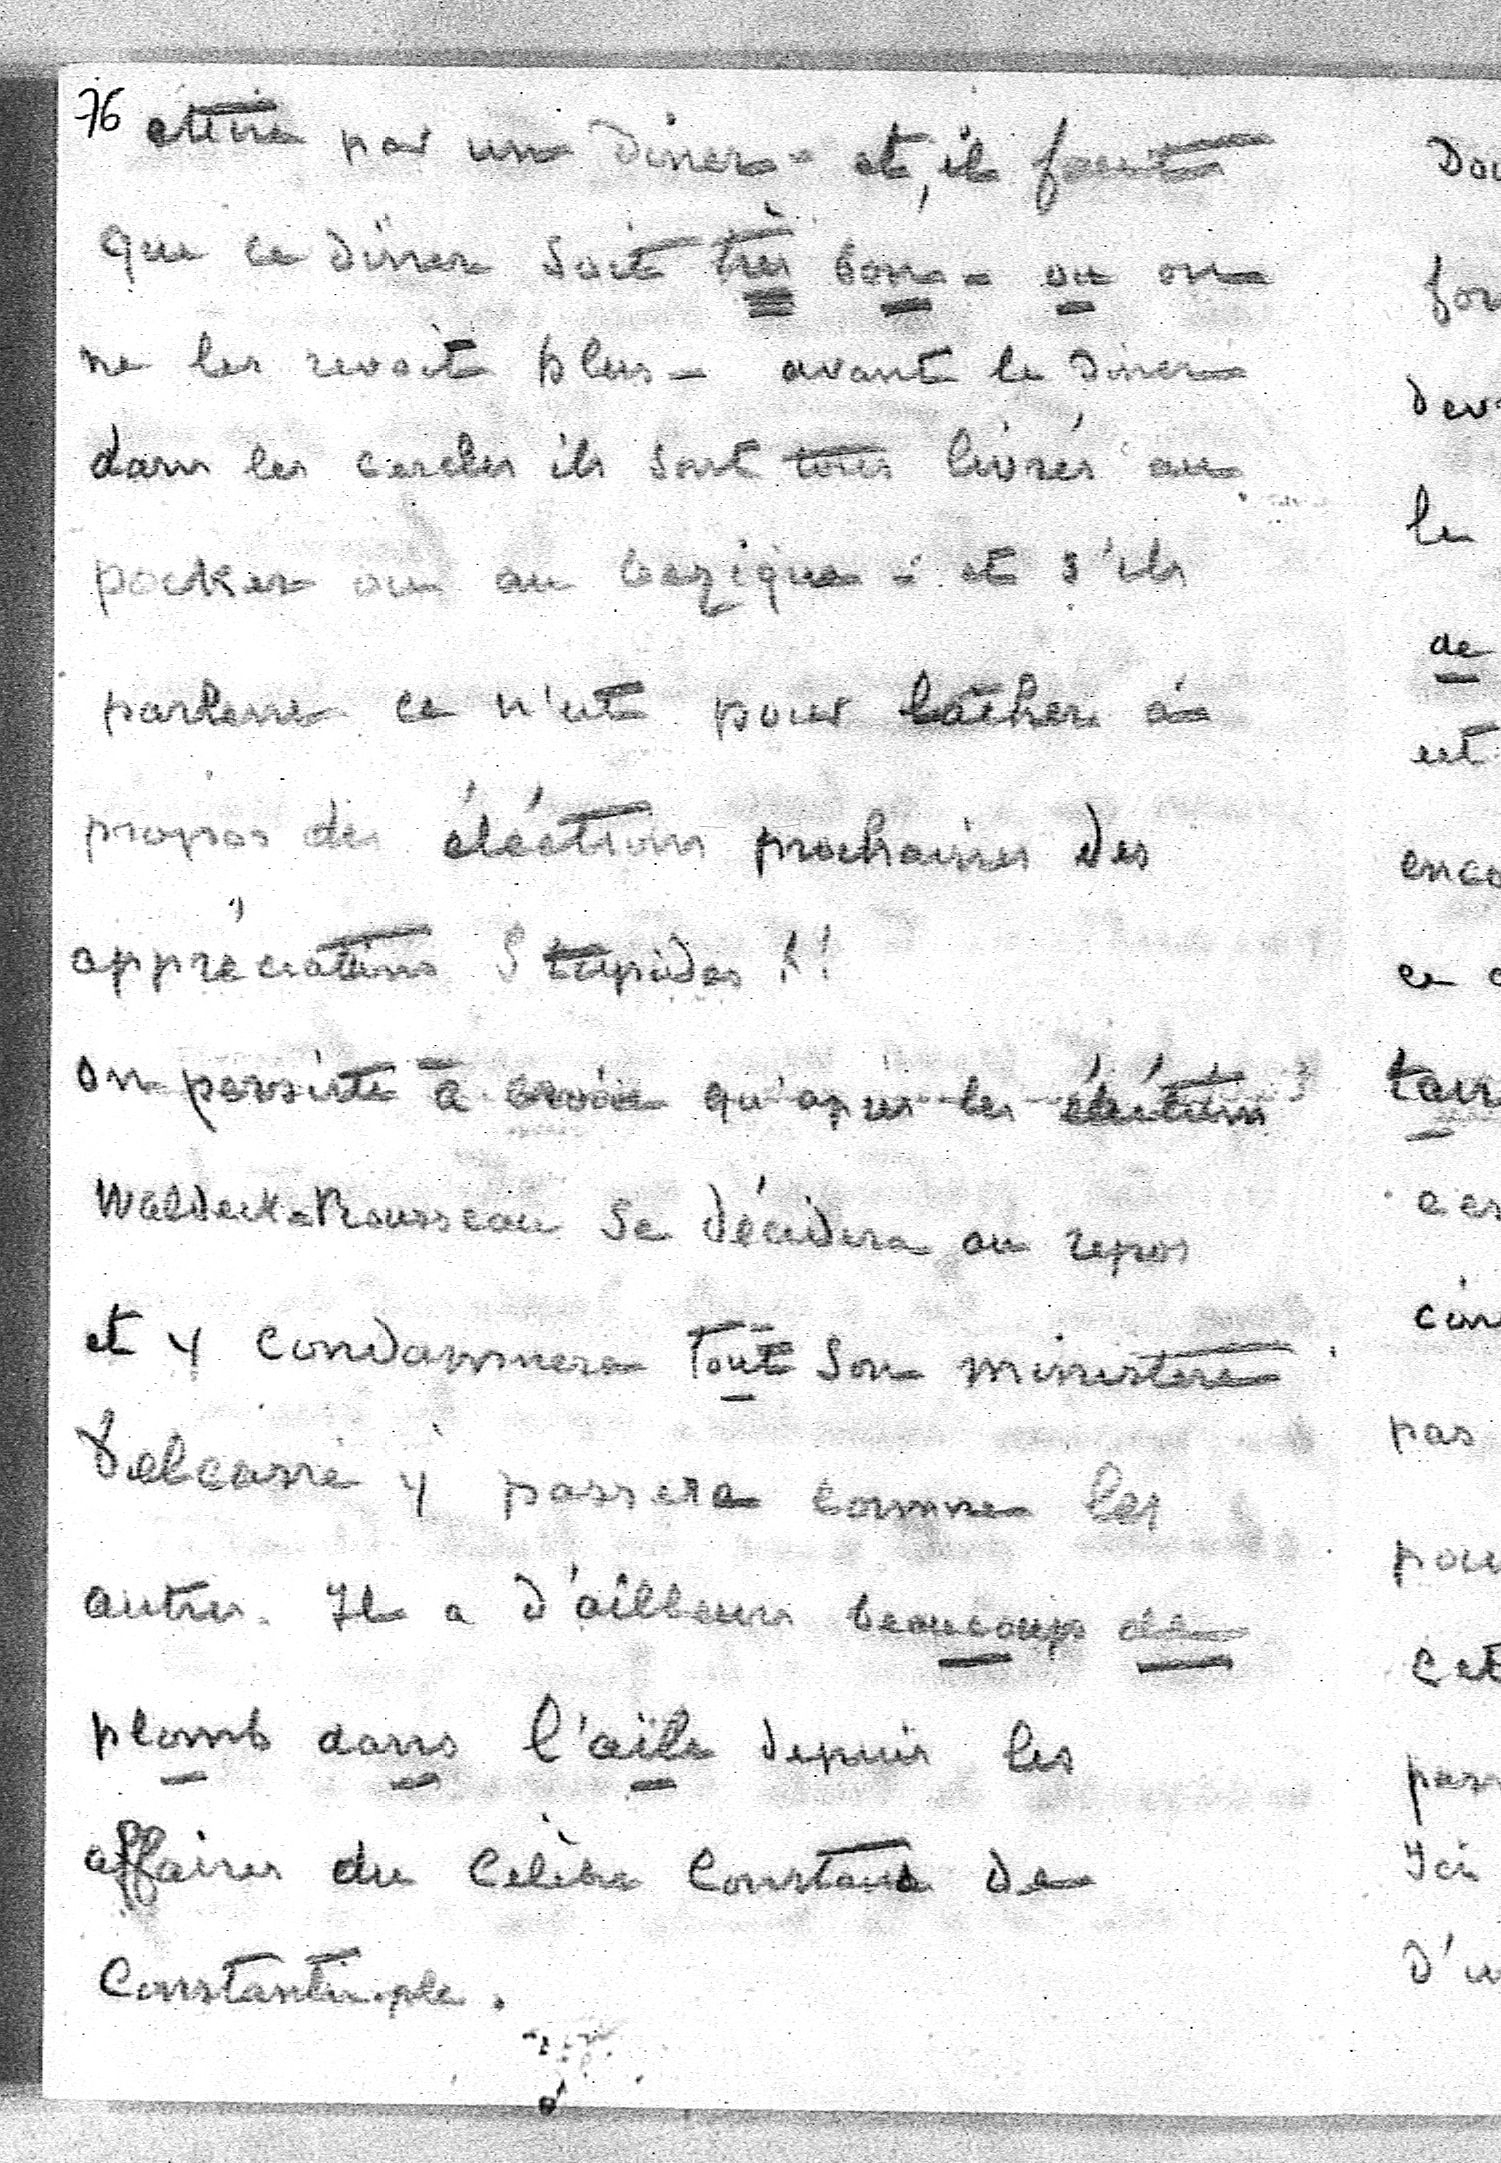 76
attire par un diner - et, il faut
que ce diner soit très bon - ou on
ne les revoit plus - avant le diner
dans les cercles ils sont tous livrés au
pocker ou au bezique - et s'ils
parlent ce n'est pour lâcher à
propos des éléctions prochaines des
appréciations Stupides !!
On persiste à croire qu'après les éléctions
Waldeck-Rousseau se décidera au repos
et y condamnera tout son ministère
Delcassé y passera comme les
autres. Il a d'ailleurs beaucoup de
plomb dans l'aile depuis les
affaires du Celèbre Constans de
Constantinople.
Dou
for
dev
le
de
est
enco
ce
tou
ces
con
pas
pou
cet
pass
Ici
D'u